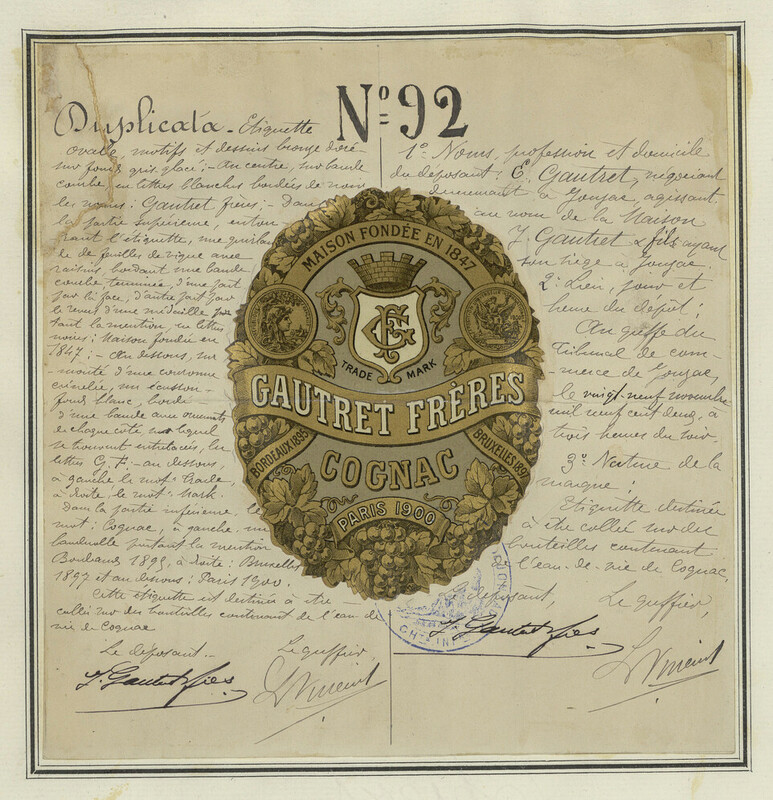 Nº 92
Duplicata - Etiquette
ovale, motifs et dessins bronze doré
sur fond gris glacé; - Au centre, sur bande
courbe, en lettres blanches bordées de noir
les noms: Gautret frères; - Dans
la partie supérieure, entou
rant l'étiquette, une guirlan
de de feuilles de vigne avec
raisins, bordant une bande
courbe terminée, d'une part
par la face, d'autre part par
le revers d'une médaille por
tant la mention, en lettres
noires: Maison fondée en
1847; - Au dessous, sur
moitié d'une couronne
crénelée, un écusson
fond blanc, bordé
d'une bande avec ornements
de chaque côté sur lequel
se trouvent entrelacées, les
lettres G. F. - au dessous,
à gauche le mot: Trade,
à droite, le mot: Mark.
Dans la partie inférieure, le
mot: Cognac, à gauche une
banderolle portant la mention
Bordeaux 1895, à droite: Bruxelles
1897 et au dessous: Paris 1900.
Cette étiquette est destinée à être
collée sur des bouteilles contenant de l'eau de
vie de Cognac
Le déposant. Le greffier,
J. Gautret & fils
MAISON FONDÉE EN 1847
TRADE MARK
GAUTRET FRÈRES
BORDEAUX 1895
BRUXELLES 1897
COGNAC
PARIS 1900
1º Noms, profession et domicile
du déposant: E. Gautret, négociant
demeurant à Jonzac, agissant
au nom de la Maison
J. Gautret & fils ayant
son siège à Jonzac.
2º Lieu, jour et
heure du dépôt:
Au greffe du
Tribunal de com-
merce de Jonzac,
le vingt-neuf novembre
mil neuf cent deux, à
trois heures du soir.
3º Nature de la
marque:
Etiquette destinée
à être collée sur des
bouteilles contenant
l'eau-de-vie de Cognac.
Le déposant, Le greffier,
J. Gautret & fils
CHTE INF